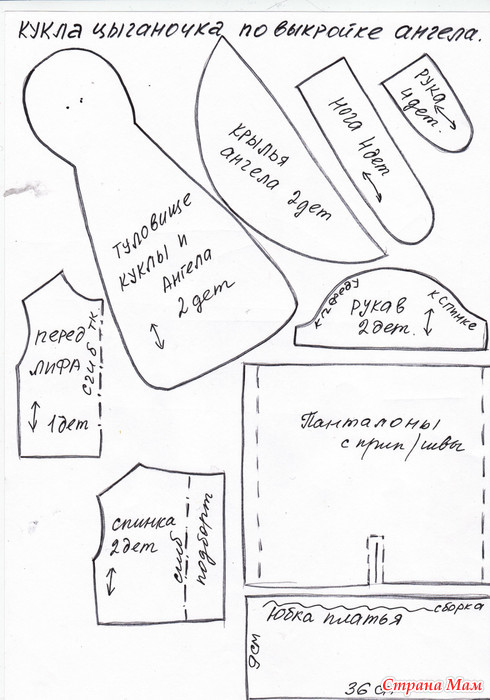 КУКЛА ЦЫГАНОЧКА ПО ВЫКРОЙКЕ АНГЕЛА.
РУКА
4 дет.
НОГА 4 дет
КРЫЛЬЯ
АНГЕЛА 2 дет
ТУЛОВИЩЕ
КУКЛЫ И
АНГЕЛА
2 дет
К ПЕРЕДУ
К СПИНКЕ
РУКАВ
2 дет.
ПЕРЕД
ЛИФА
1 дет
СГИБ ТК
Панталоны
с прип/швы
СПИНКА
2 дет
сгиб
подборт
сборка
Юбка платья
9 см
36 с
Страна Мам